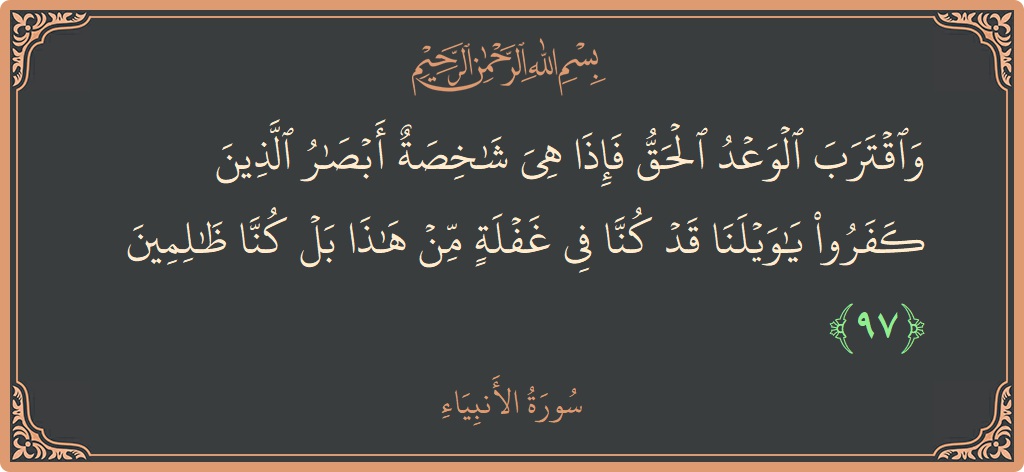 بِسْمِ اللَّهِ الرَّحْمَٰنِ الرَّحِيمِ
وَٱقْتَرَبَ ٱلْوَعْدُ ٱلْحَقُّ فَإِذَا هِىَ شَـٰخِصَةٌ أَبْصَـٰرُ ٱلَّذِينَ
كَفَرُوا۟ يَـٰوَيْلَنَا قَدْ كُنَّا فِى غَفْلَةٍ مِّنْ هَـٰذَا بَلْ كُنَّا ظَـٰلِمِينَ
﴿٩٧﴾
سُورَةُ الأَنبِيَاءِ